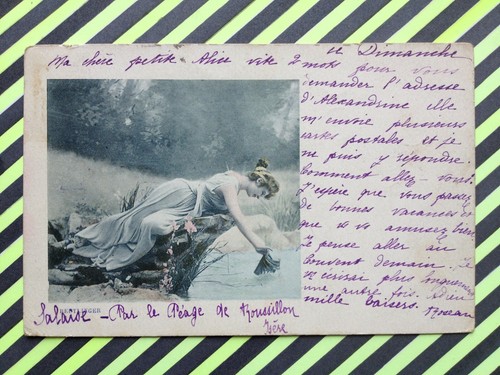 ce Dimanche
Ma chère petite Alice vite 2
mots pour vous
demander l'adresse
d'Alexandrine elle
m'envoie plusieurs
cartes postales et je
ne puis y répondre.
Comment allez-vous.
J'espère que vous passez
de bonnes vacances et
que vs vs amusez bien
Je pense aller au
couvent demain. Je
vs écrirai plus longuement
une autre fois. Adieu
mille baisers.
REUTLINGER
Salaise - Par le Péage de Roussillon
Isère